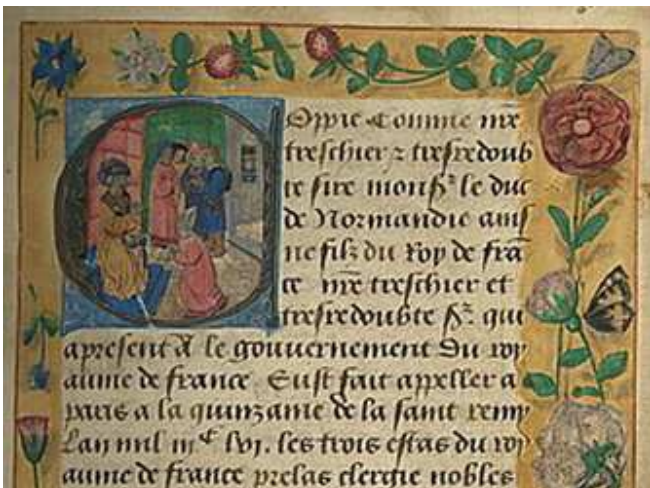 Oppie Comme mr̃e
treschier ⁊ tresredoub
te sire monſʳ le duc
de Normandie ains
ne filz du Roy de frã
ce mr̃e treschier et
tresredoubte sʳ qui
apresent A le gouvernement Du roy
aume de france. Eust fait appeller a
paris a la quinzaine de la saint remy
Lan mil iiiᶜ lvi. les trois estas du roy
aume de france prelas clergie nobles